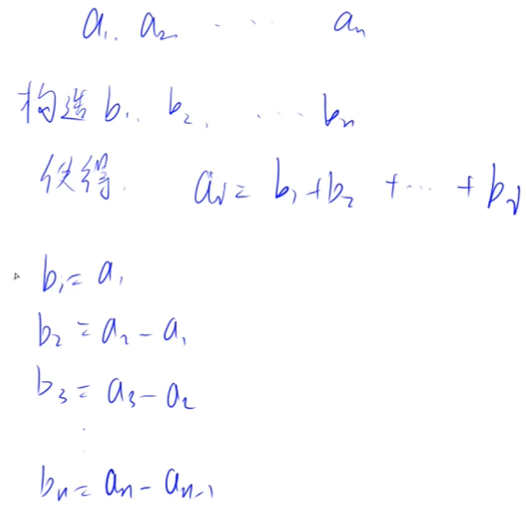 a₁, a₂ ... aₙ
构造 b₁, b₂, ... bₙ
使得 aᵢ = b₁+b₂ + ... + bᵢ
b₁ = a₁
b₂ = a₂ - a₁
b₃ = a₃ - a₂
⋮
bₙ = aₙ - aₙ₋₁